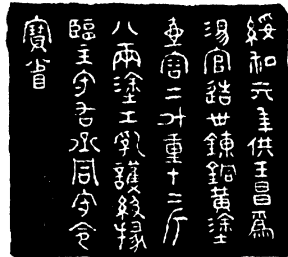 綏和元年供王昌爲
湯官造卅鍊銅黃塗
壺容二斗重十二斤
八兩塗工乳護級掾
臨主守右丞同守令
寶省